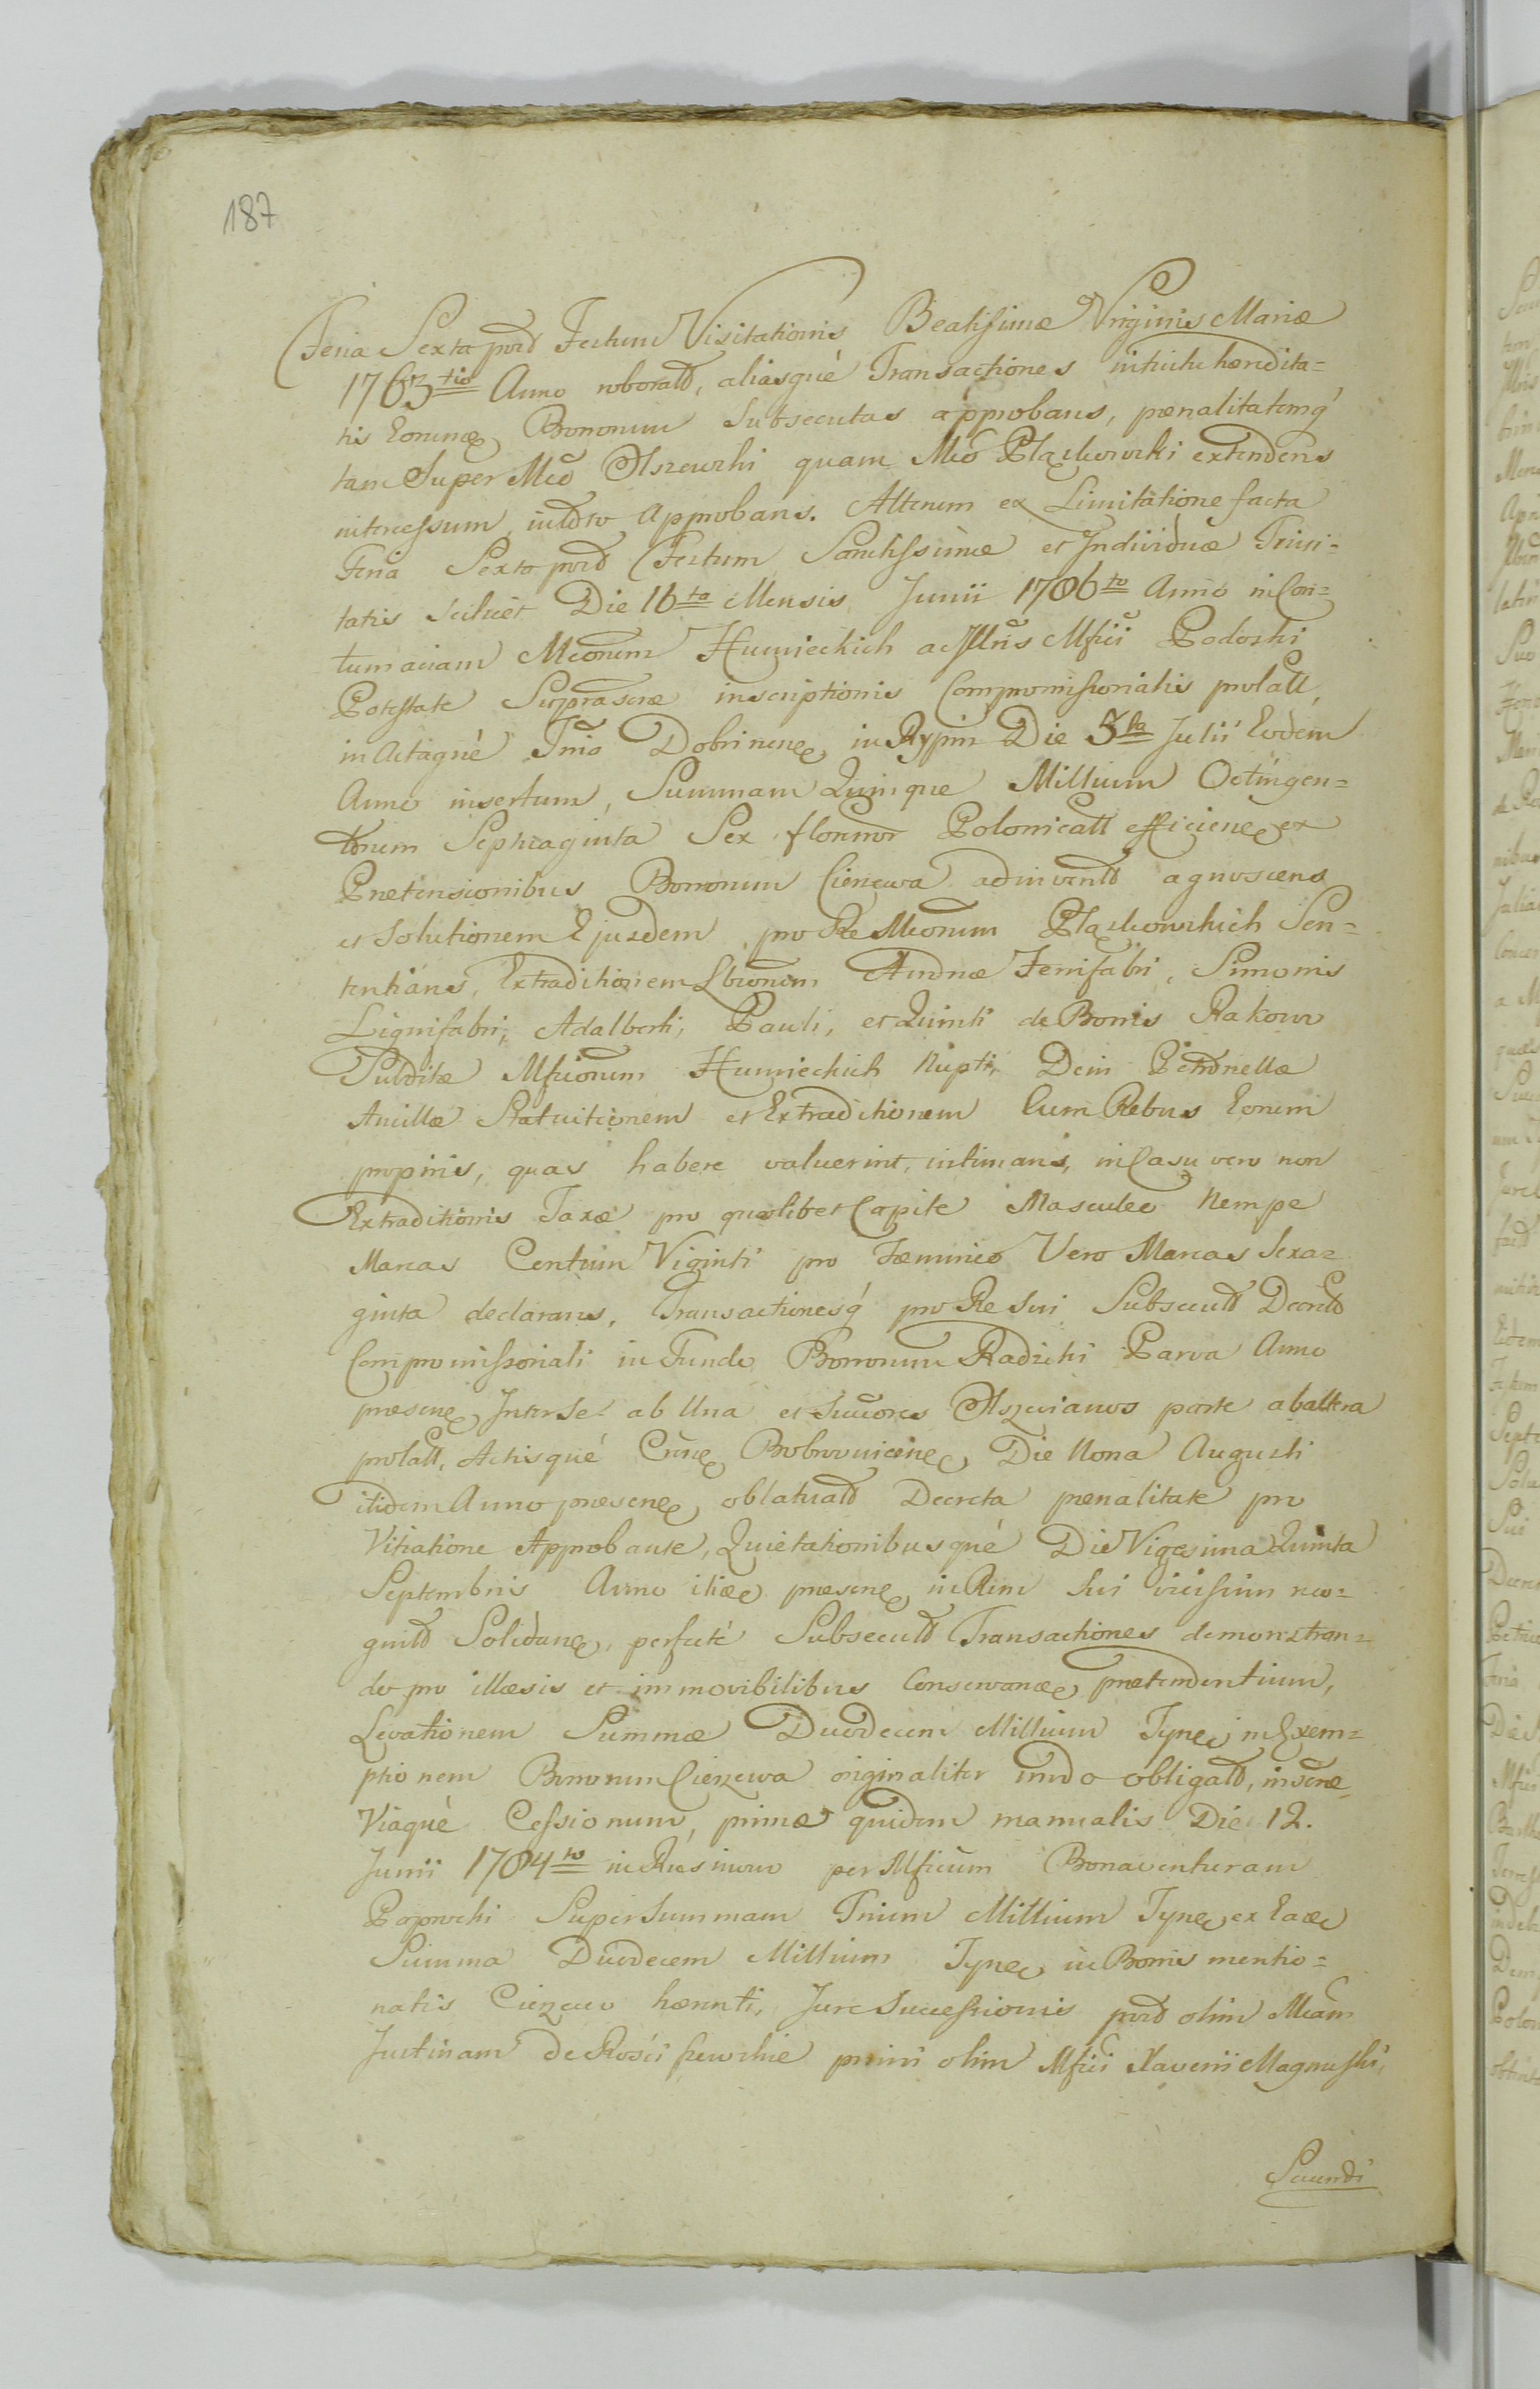 187
Feria Sexta post Festum Visitationis Beatissimæ Virginis Mariæ
1763tio Anno roboratt, aliasquè Transactiones intuitu hæredita=
tis Eorunde Bonorum Subsecutas approbans, pænalitatemq́
tam Super Mco Olszewski quam Mco Płąskowski extendens
intercessum, approbans. Alterum ex Limitatione facta
Feria Sexta post Festum Sanctissimæ et Individuæ Trini=
tatis scilicet Die 16ta Mensis Junii 1786to Anno in Con=
tumaciam Mcorum Humieckich ac Illris Mfici Podoski
Potestate Suprascræ inscriptionis Compromissorialis prolatt,
in Actaquè Dobrinen in Rypin Die 5ta Julii Eodem
Anno insertum, Summam Quinque Millium Octingen=
torum Septuaginta Sex florenor Polonicatt efficien ex
Prætensionibus Bonorum Cienewa adinventt agnoscens
et Solutionem Ejusdem pro Re Mcorum Płąskowskich Sen=
tentians, Extraditionem Andreæ Ferrifabri, Simonis
Lignifabri, Adalberti, Pauli, et Quinti de Bonis Rakow
Subditæ Mficorum Humieckich Nupti, Dein Petronellæ
Ancillæ Statuitionem et Extraditionem Cum Rebus Eorum
propriis, quas habere valuerint, intimans, in Casu vero non
Extraditionis Taxæ pro quolibet Capite Masculeo Nempe
Marcas Centum Viginti pro Fæmineo Vero Marcas Sexa=
ginta declarans, Transactionesq́ pro Re Sui Subsecutt
Compromissoriali in Fundo Bonorum Radziki Parva Anno
præsen Inter Se ab Una et Succores Olszevianos parte ab altera
prolatt, Actisqué Bobrovnicen, Die Nona Augusti
itidem Anno præsen oblatuatt Decreta pænalitate pro
Vitiatione Approbante, Quietationibusquè Die Vigesima Quinta
Septembris Anno præsen in Rem Sui vicissim reco=
gnitt Solidan, perfecté Subsecutt Transactiones demonstran=
do pro illæsis et immovibilibus Conservan prætendentium,
Levationem Summæ Duodecem Millium Tynf in Exem=
ptionem Bonorum Cienewa originaliter obligatt,
Viaquè Cessionum, primæ quidem manualis Die 12.
Junii 1784to in per Mficum Bonaventuram
Super Summam Trium Millium Tynf ex
Summa Duodecem Millium Tynf in Bonis mentio=
natis hærenti, Jure Successionis post olim Mcam
Justinam de primi olim Mfici Xaverii Magnuski,
Secundi